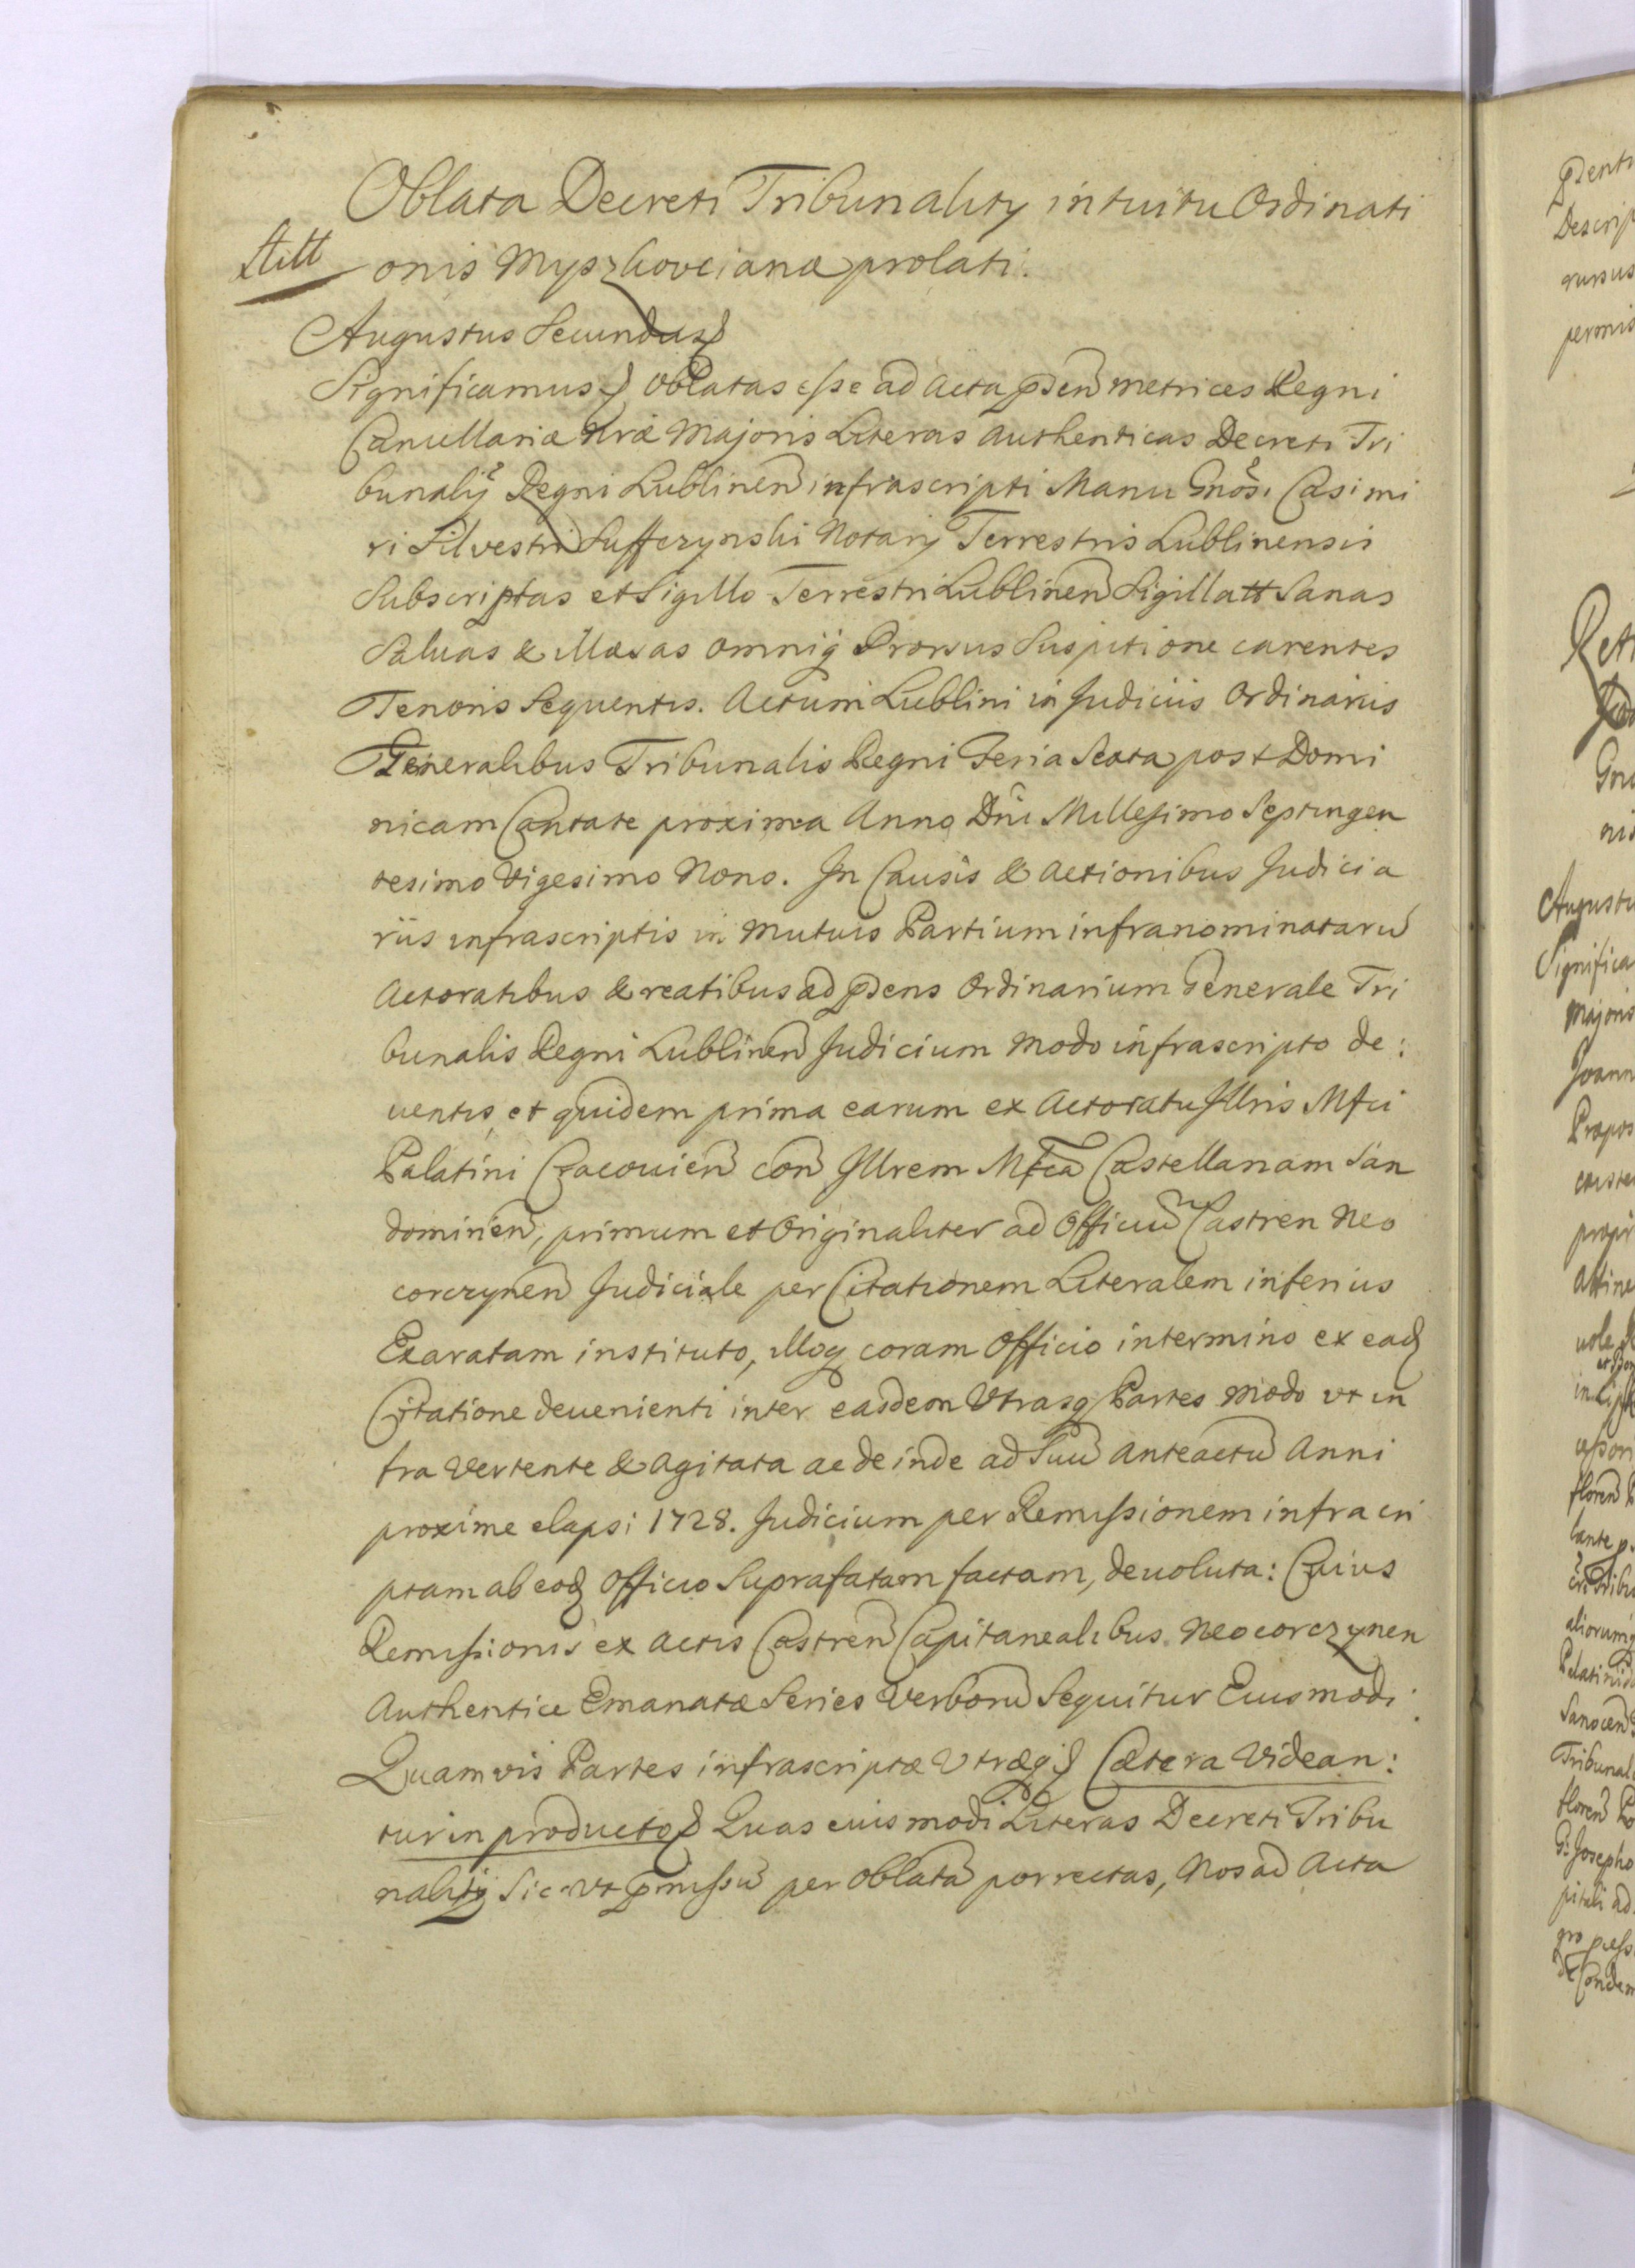 Oblata Decreti Tribunalitij intuitu Ordinati
onis Myszkoveianæ prolati.
Augustus Secundus
Significamus Oblatas esse ad Acta pñden Metrices Regni
Cancellariæ Nræ Majoris Literas Authenticas Decreti Tri
bunalij Regni Lublinen infrascripti Manu Gnosi Casimi
ri Silvestri Suffczynski Notarij Terrestris Lublinensis
Subscriptas et Sigillo Terrestri Lublinen Sigillatt Sanas
Saluas & Illæsas omniq Prorsus Suspitione carentes
Tenoris Sequentis. Actum Lublini in Judiciis Ordinariis
Generalibus Tribunalis Regni Feria Sexta post Domi
nicam Cantate proxima Anno Dni Millesimo Septingen
tesimo Vigesimo Nono. In Causis & Actionibus Judicia
riis infrascriptis in Mutuis Partium infranominatarū
Actoratibus & reatibus ad pñdens Ordinarium Generale Tri
bunalis Regni Lublinen Judicium Modo infrascripto de:
uentis, et quidem prima earum ex Actoratu Illris Mfci
Palatini Cracouien con Illrem Mfcā Castellanam San
domirien, primum et Originaliter ad Officiū Castren Neo
corczynen Judiciale per Citationem Literalem inferius
Exaratam instituto, Illoq coram Officio in termino ex eadᵉ
Citatione deuenienti inter easdem Vtrasq Partes modo vt in
fra Vertente & Agitata ac deinde ad Suū Anteactū Anni
proxime elapsi 1728. Judicium per Remissionem infra cri
ptam ab eodᵉ Officio Suprafatam factam, deuoluta: Cuius
Remissionis ex Actis Castren Capitanealibus Neocorczynen
Authentice Emanatæ Series Verborū Sequitur Eiusmodi:
Quamvis Partes infrascriptæ Vtræq Cætera Videan:
tur in producto Quas eiusmodi Literas Decreti Tribu
nalitij Sic Vt pmissū per Oblatā porrectas, Nos ad Acta